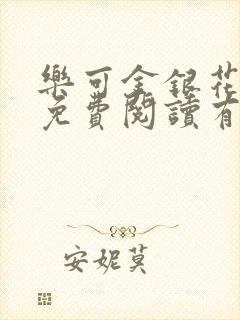 樂可金銀花
免費閱讀有
安妮莫